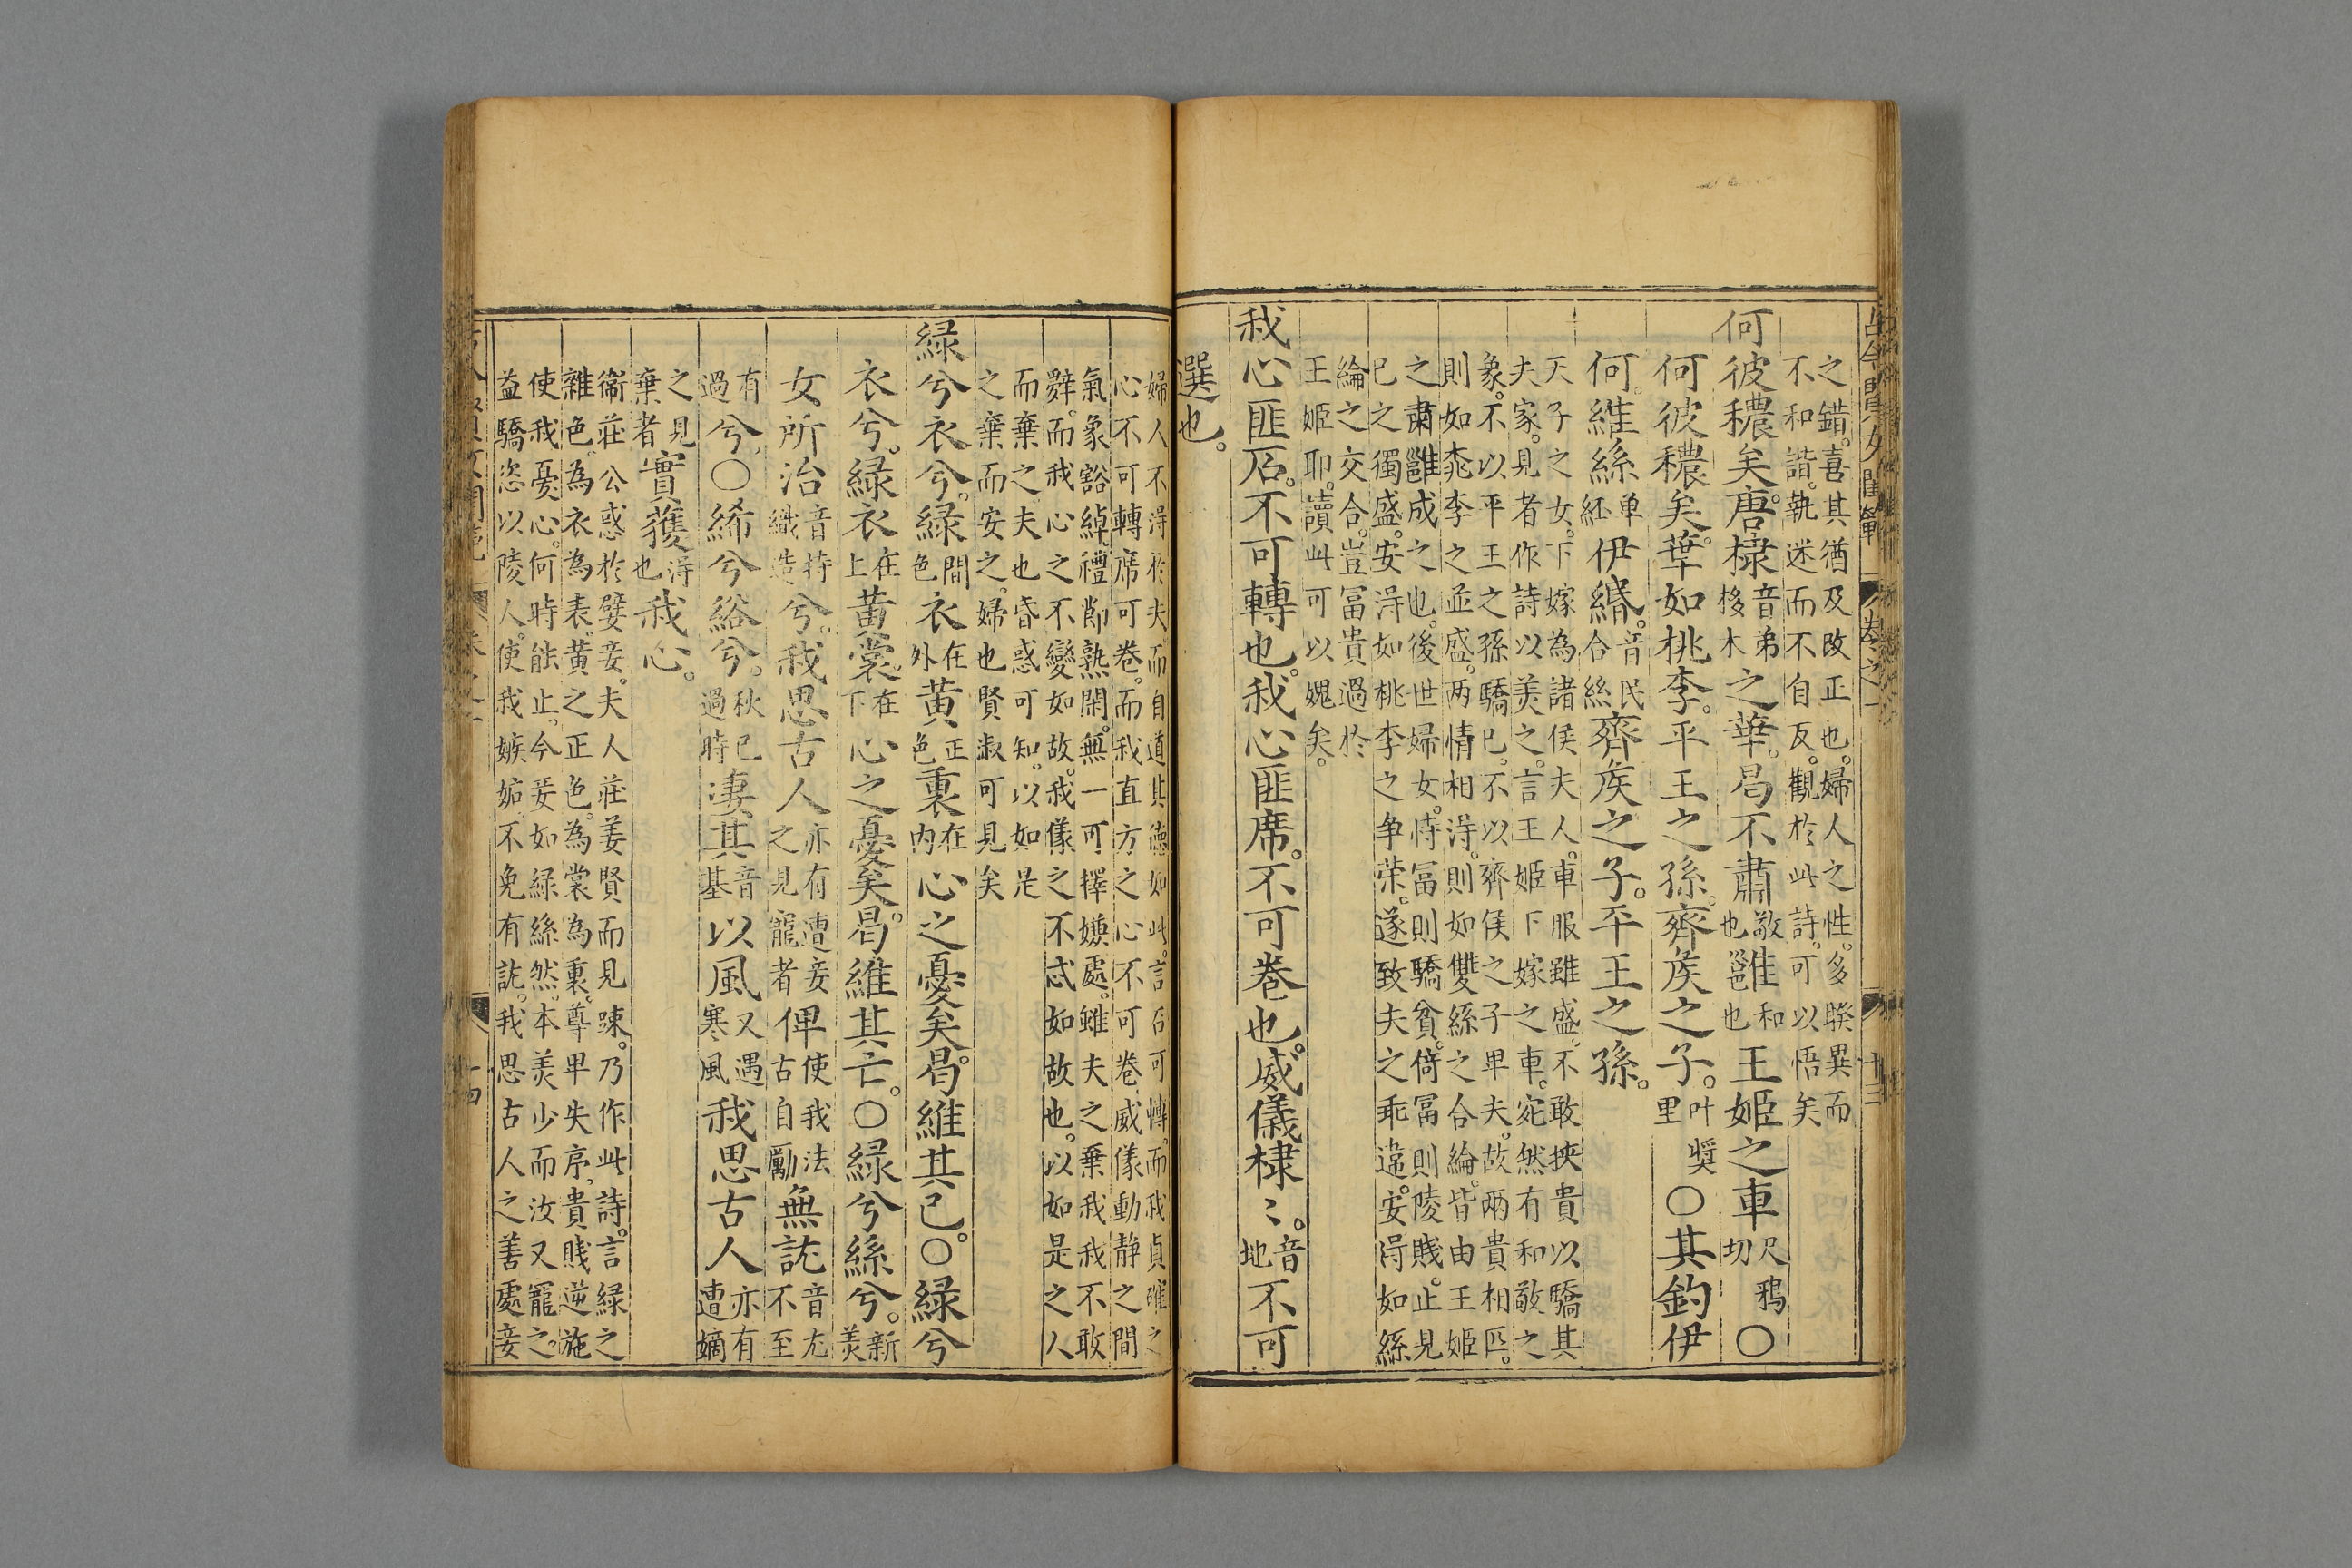 之錯。喜其猶及改正也。婦人之性。多暌異而
不和諧。執迷而不自反。觀於此詩。可以悟矣
何彼穠矣。唐棣音弟栘木之華。曷不肅敬也雝和也王姬之車尺鴉切〇
何彼穠矣。華如桃李。平王之孫。齊侯之子。叶獎里〇其釣伊
何。維絲伊緡。音民合絲齊侯之子。平王之孫。
天子之女。下嫁為諸侯夫人。車服雖盛。不敢挾貴以驕其
夫家。見者作詩以美之。言王姬下嫁之車。宛然有和敬之
象。不以平王之孫驕巳。不以齊侯之子卑夫。故兩貴相匹。
則如桃李之並盛。两情相得。則如雙絲之合綸。皆由王姬
之肅雝成之也。後世婦女。恃冨則驕貧。倚冨則陵賤。止見
已之獨盛。安得如桃李之争荣。遂致夫之乖違。安得如絲
綸之交合。豈冨貴過於
王姬耶。讀此可以媿矣。
我心匪石。不可轉也。我心匪席。不可卷也。威儀棣〻。音地不可
選也。
婦人不得於夫。而自道其德如此。言石可轉。而我貞確之
心不可轉。席可卷。而我直方之心不可卷。威儀動静之間
氣象豁綽。禮節熟閑。無一可擇嫌處。雖夫之棄我。我不敢
辤。而我心之不變如故。我儀之不忒如故也。以如是之人
而棄之。夫也昏惑可知。以如是
之棄而安之。婦也賢淑可見矣
緑兮衣兮。緑間色衣在外黄正色裏在内心之憂矣。曷維其已。〇緑兮
衣兮。緑衣在上黄裳。在下心之憂矣。曷維其亡。〇緑兮絲兮。新美
女所治音持織造兮。我思古人亦有遭妾之見寵者俾使我法古自勵無訧音尤不至
有過兮。〇絺兮綌兮。秋已過時淒其音基以風又遇寒風我思古人亦有遭嫡
之見棄者實獲得也我心。
衞莊公惑於嬖妾。夫人莊姜賢而見踈。乃作此詩。言緑之
雜色。為衣為表。黄之正色。為裳為裏。尊卑失序。貴賎逆施
使我憂心。何時能止。今妾如緑絲然。本美少而汝又寵之。
益驕恣以陵人。使我嫉妬。不免有訧。我思古人之善處妾